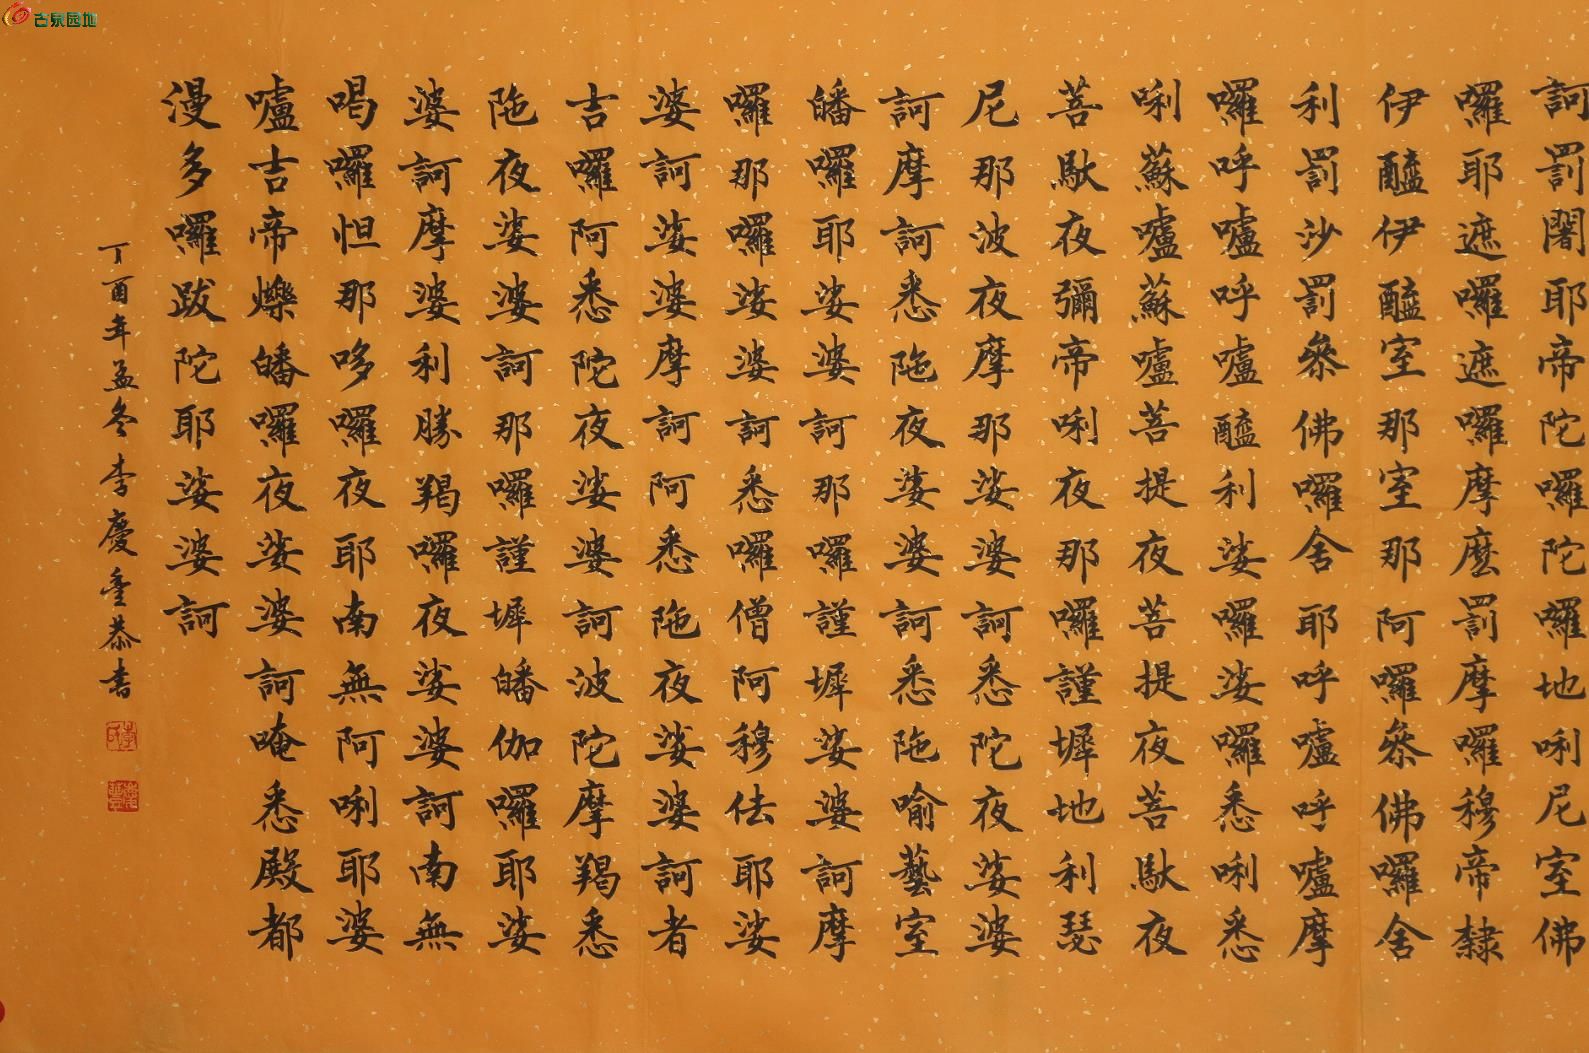 訶罰闍耶帝陀囉陀囉地唎尼室佛
囉耶遮囉遮囉摩麼罰摩囉穆帝隸
伊醯伊醯室那室那阿囉參佛囉舍
利罰沙罰參佛囉舍耶呼嚧呼嚧摩
囉呼嚧呼嚧醯利娑囉娑囉悉唎悉
唎蘇嚧蘇嚧菩提夜菩提夜菩馱夜
菩馱夜彌帝唎夜那囉謹墀地利瑟
尼那波夜摩那娑婆訶悉陀夜娑婆
訶摩訶悉陁夜娑婆訶悉陁喻藝室
皤囉耶娑婆訶那囉謹墀娑婆訶摩
囉那囉娑婆訶悉囉僧阿穆佉耶娑
婆訶娑婆摩訶阿悉陁夜娑婆訶者
吉囉阿悉陀夜娑婆訶波陀摩羯悉
陁夜娑婆訶那囉謹墀皤伽囉耶娑
婆訶摩婆利勝羯囉夜娑婆訶南無
喝囉怛那哆囉夜耶南無阿唎耶婆
嚧吉帝爍皤囉夜娑婆訶唵悉殿都
漫多囉跋陀耶娑婆訶
丁酉年孟冬李慶豐恭书
古泉园地